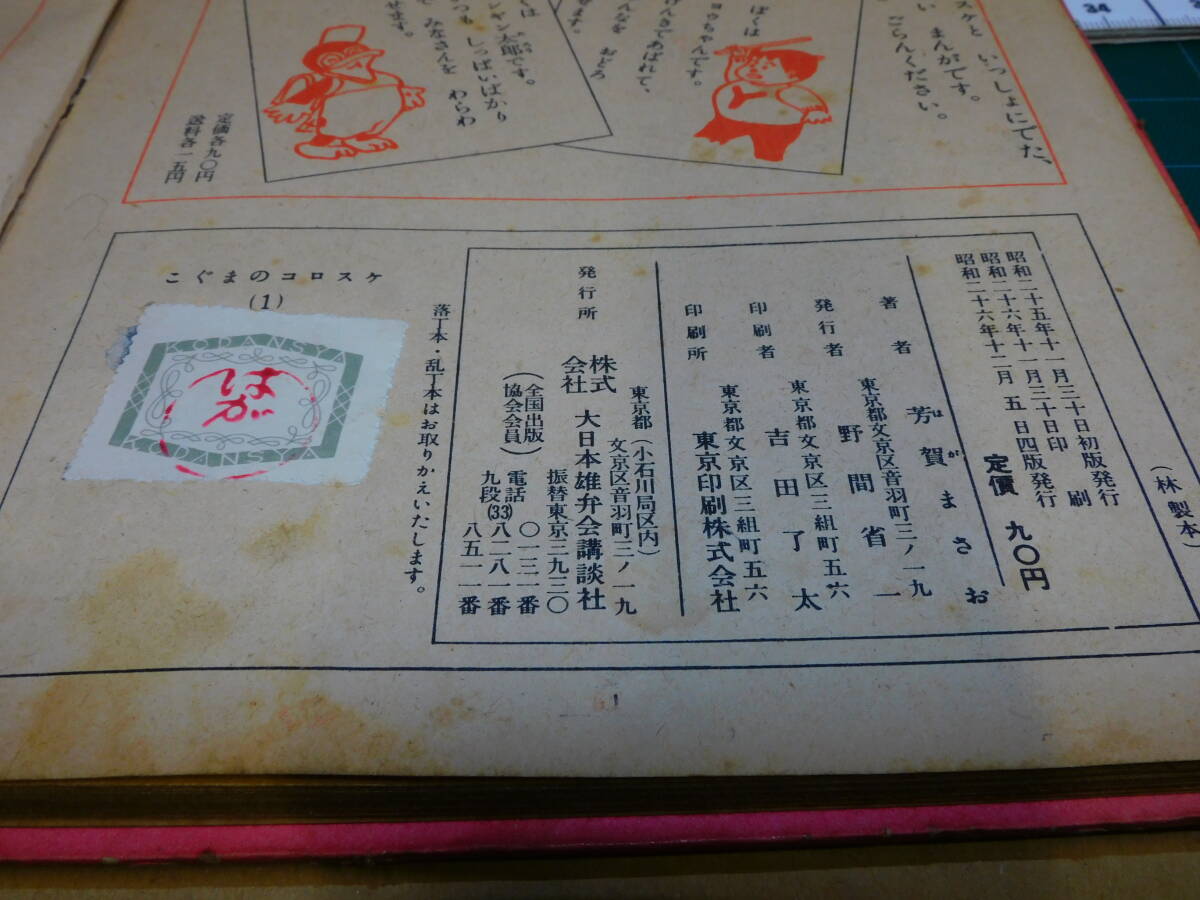 スケと いっしょにでた、
い まんがです。
ごらんください。
ぼくは
ョウちゃんです。
げんきであばれて、
んなを おどろ
せます。
くは
ンギン太郎です。
つも しっぱいばかり
て みなさんを わらわ
せます。
定価各九〇円
送料各一五円
(林製本)
昭和二十五年十一月三十日初版発行
昭和二十六年十一月三十日印 刷
昭和二十六年十二月 五 日四版発行
定價 九〇円
著者 芳賀まさお
はが
東京都文京区音羽町三ノ一九
発行者 野間省一
東京都文京区三組町五六
印刷者 吉田了太
東京都文京区三組町五六
印刷所 東京印刷株式会社
東京都(小石川局区内)
文京区音羽町三ノ一九
発行所 株式会社 大日本雄弁会講談社
(全国出版協会会員)
振替東京三九三〇
電話 〇一三一番
九段(33)八二八一番
八五一一番
落丁本・乱丁本はお取りかえいたします。
こぐまのコロスケ
(1)
KODANSYA
はが
KODANSYA
34